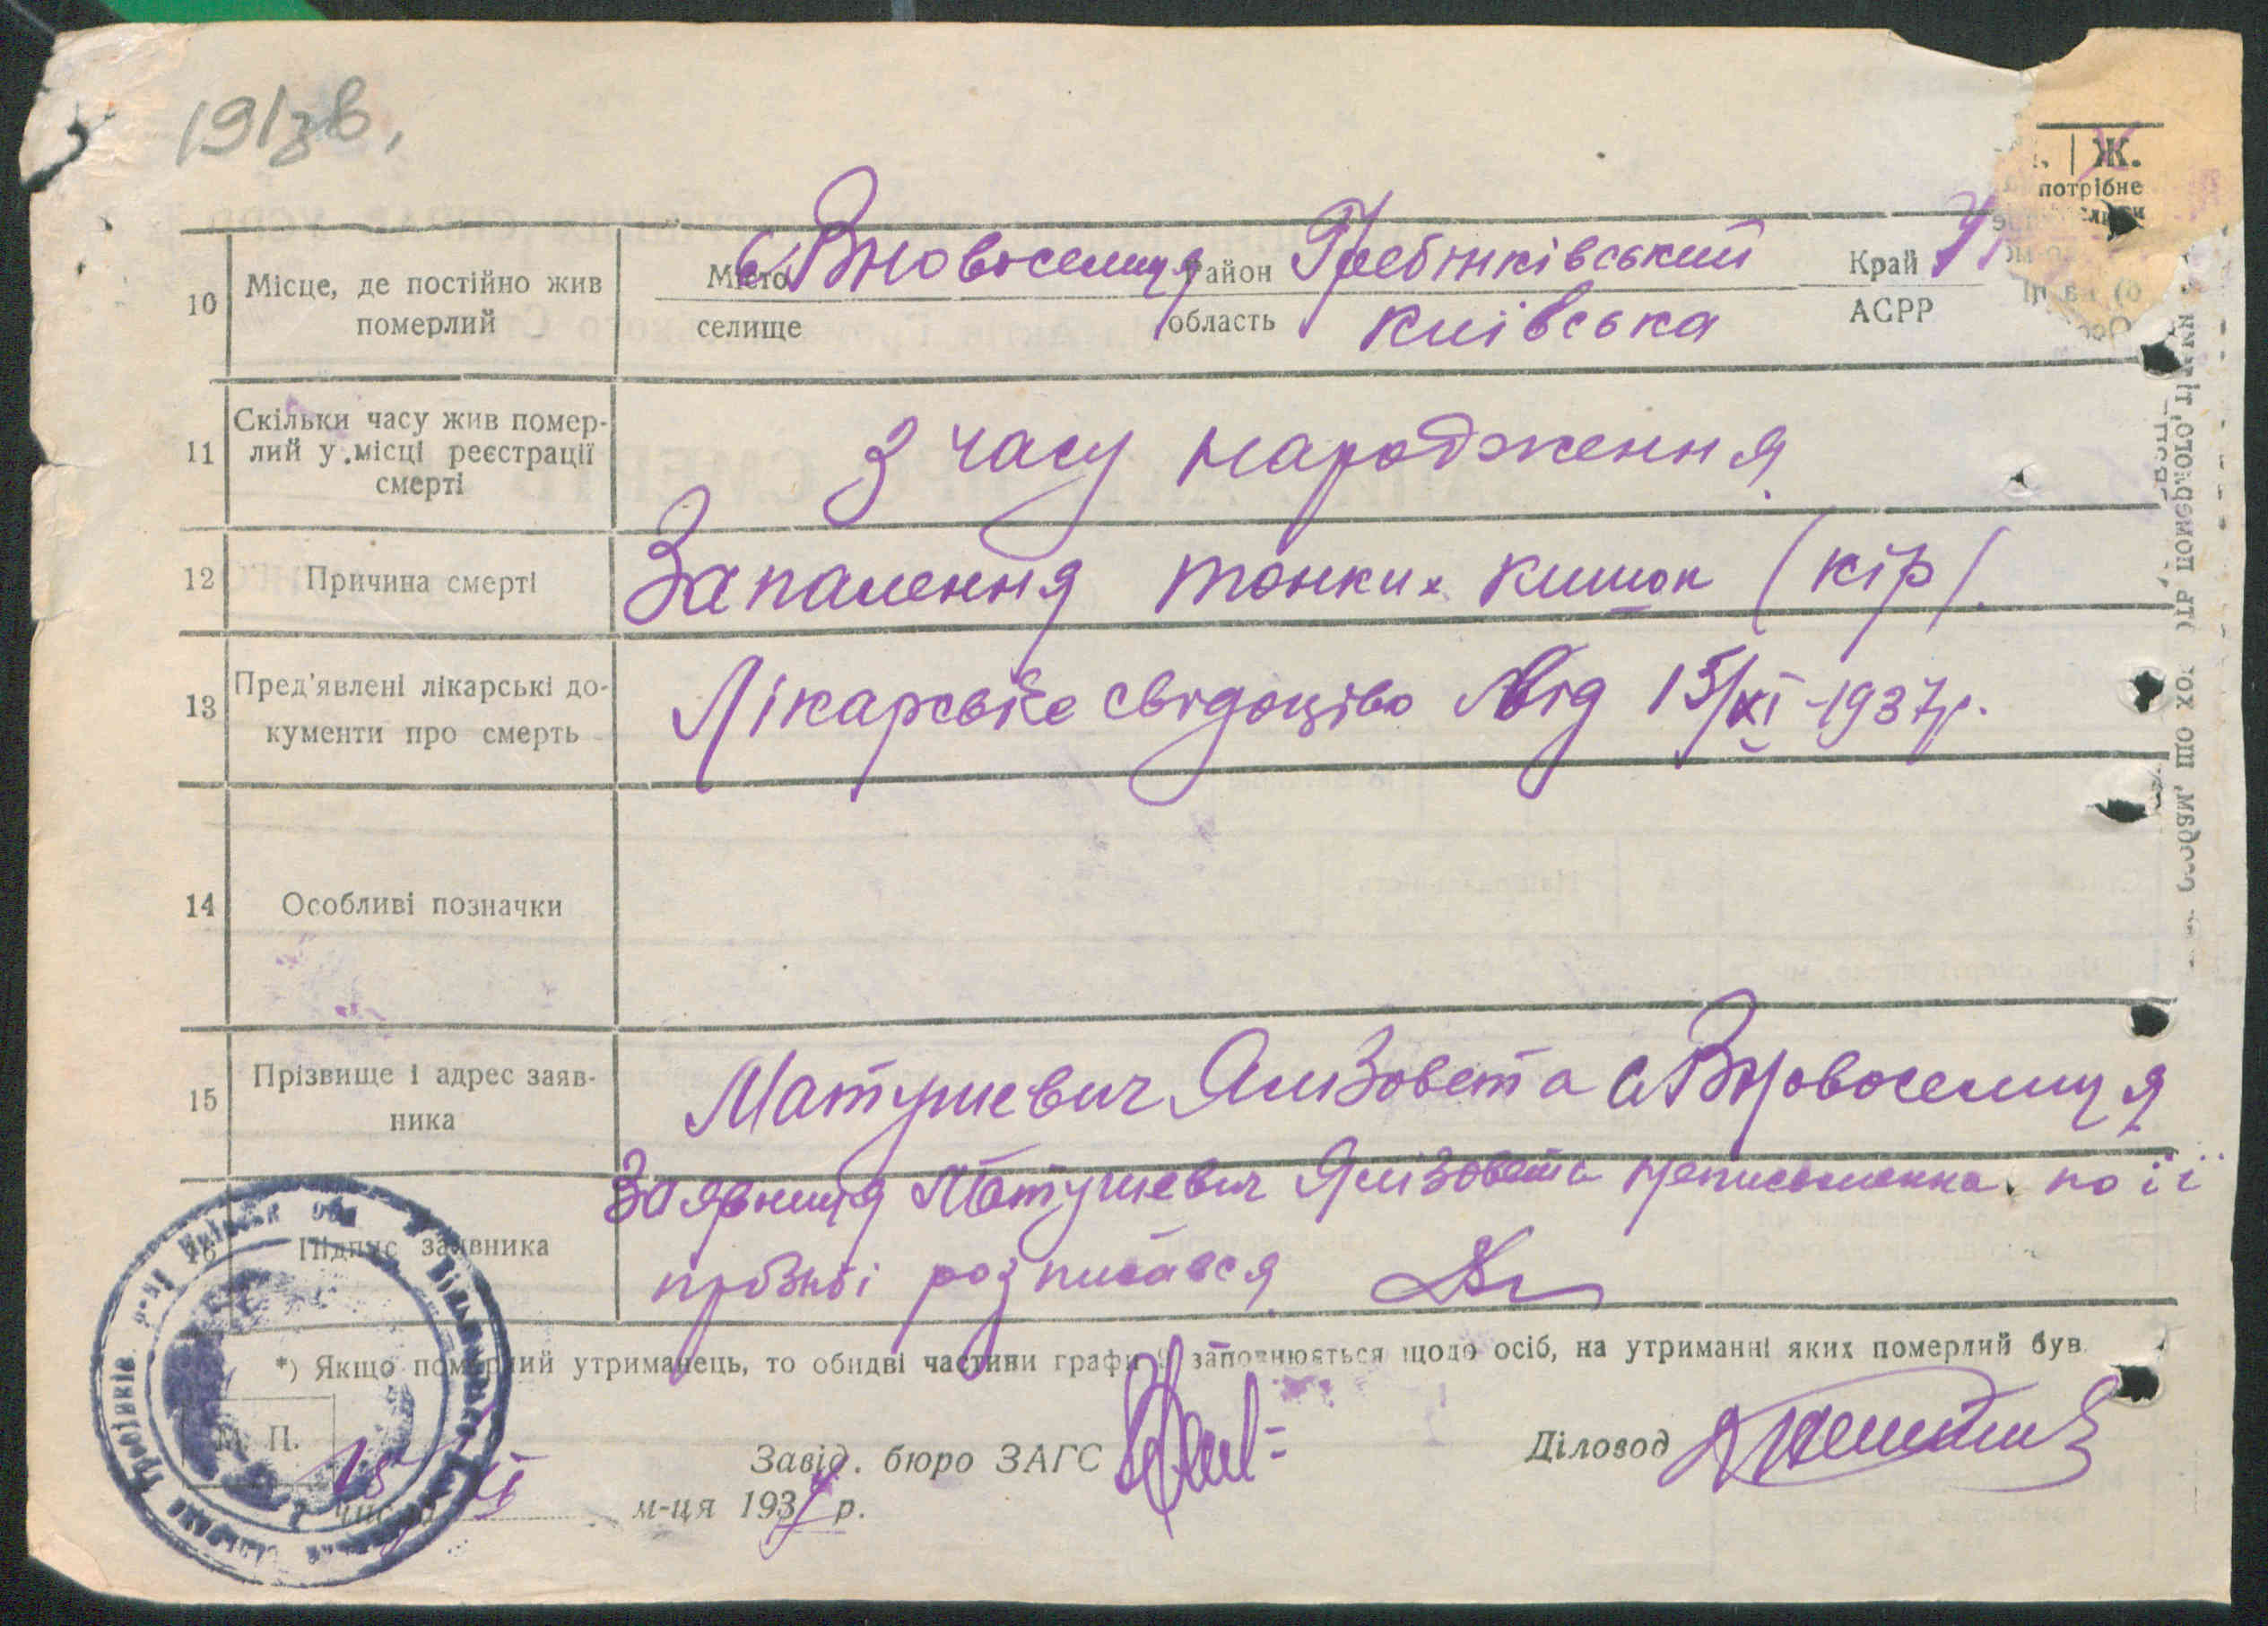 191зв,
Ж.
потрібне
10 Місце, де постійно жив померлий
Місто с. Вновоселиця район Гребінківський Край У
селище область Київська АСРР
11 Скільки часу жив помер-
лий у місці реєстрації
смерті
З часу народження
12 Причина смерті Запалення тонких кишок (кір).
13 Пред'явлені лікарські до-
кументи про смерть
Лікарське свідоцтво від 15/XI-1937р.
14 Особливі позначки
15 Прізвище і адрес заяв-
ника
Матушевич Ялизовета с. Вновоселиця
16 Підпис заявника
Заявниця Матушевич Ялізовета неписьменна. по її
прозьбі розписався
*) Якщо померлий утриманець, то обидві частини графи 9 заповнюється щодо осіб, на утриманні яких померлий був.
М. П.
Завід. бюро ЗАГС
Діловод
15 числа XI м-ця 1937 р.